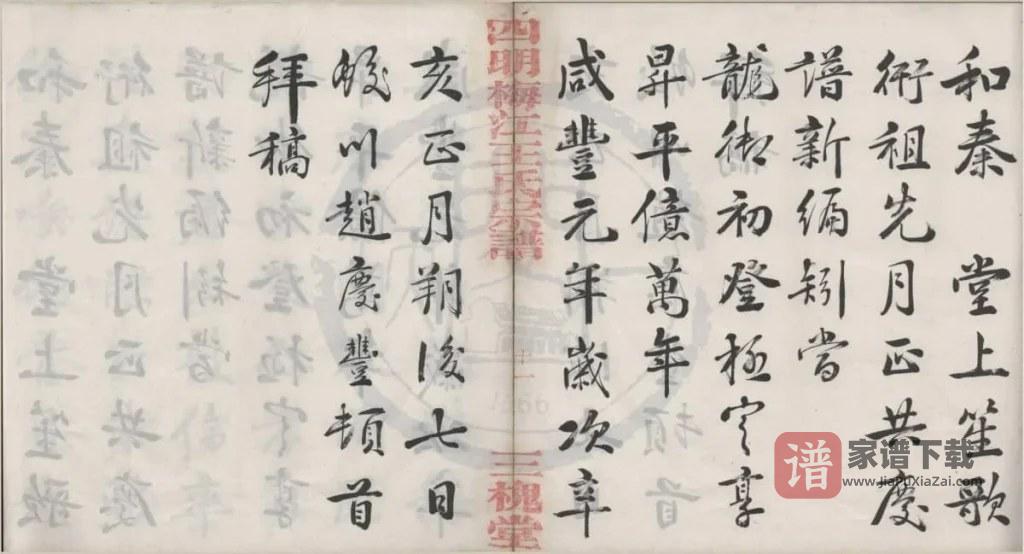 和奏 堂上笙歌
衎祖先月正共慶
譜新編矧當
龍御初登極定享
昇平億萬年
咸豐元年歲次辛
四明梅江王氏宗譜 十一 三槐堂
亥正月朔後七日
蛟川趙慶豐頓首
拜稿
谱 家谱下载
www.JiaPuXiaZai.com